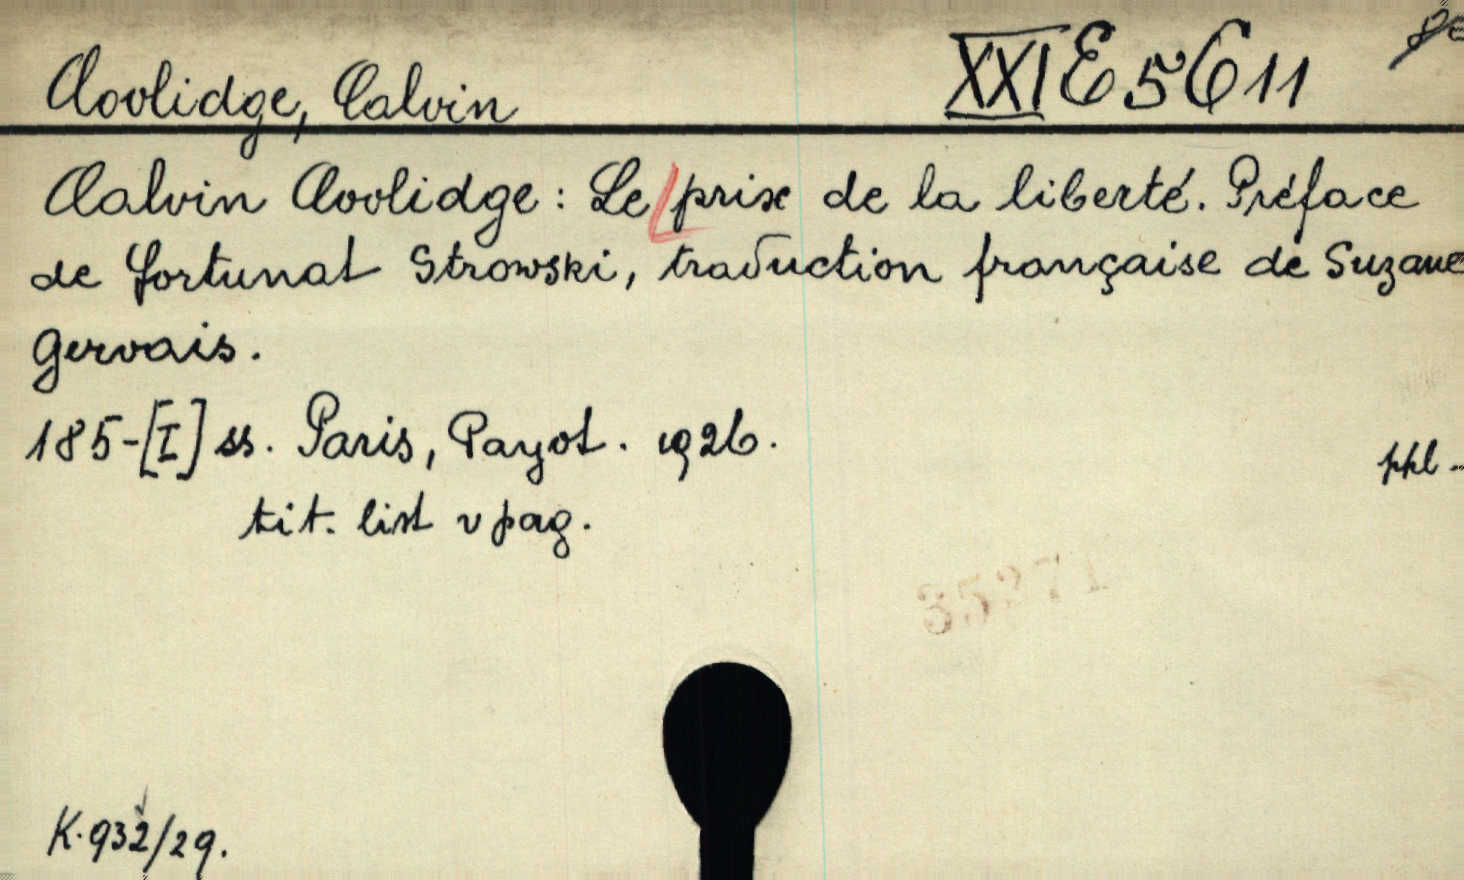 Coolidge, Calvin XXI E 5 C 11
Calvin Coolidge : Le prix de la liberté. Préface
de Fortunat Strowski, traduction française de Suzane
Gervais.
185-[I] ss. Paris, Payot. 1926.
ppl..
tit. list v pag.
35271
K. 932/29.